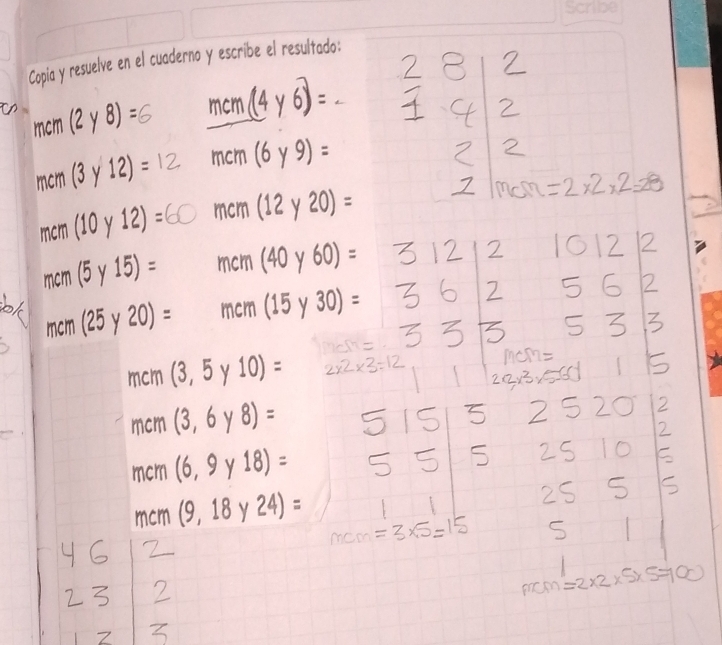 Scribe
Copia y resuelve en el cuaderno y escribe el resultado:
mcm (2 y 8) = 6
mcm (4 y 6) = -
mcm (3 y 12) = 12
mcm (6 y 9) =
mcm (10 y 12) = 60
mcm (12 y 20) =
mcm (5 y 15) =
mcm (40 y 60) =
mcm (25 y 20) =
mcm (15 y 30) =
mcm (3, 5 y 10) =
mcm (3, 6 y 8) =
mcm (6, 9 y 18) =
mcm (9, 18 y 24) =
2 8 | 2
1 4 | 2
2 | 2
1 | mcm = 2 x 2 x 2 =
3 12 | 2
3 6 | 2
3 3 | 3
1 1
mcm =
2 x 2 x 3 = 12
10 12 | 2
5 6 | 2
5 3 | 3
1 | 5
mcm =
5 15 | 3
5 5 | 5
1 1
mcm = 3 x 5 = 15
25 20 | 2
25 10 | 2
25 5 | 5
5 1 | 5
1
mcm = 2 x 2 x 5 x 5 = 100
4 6 | 2
2 3 | 2
1 3 | 3